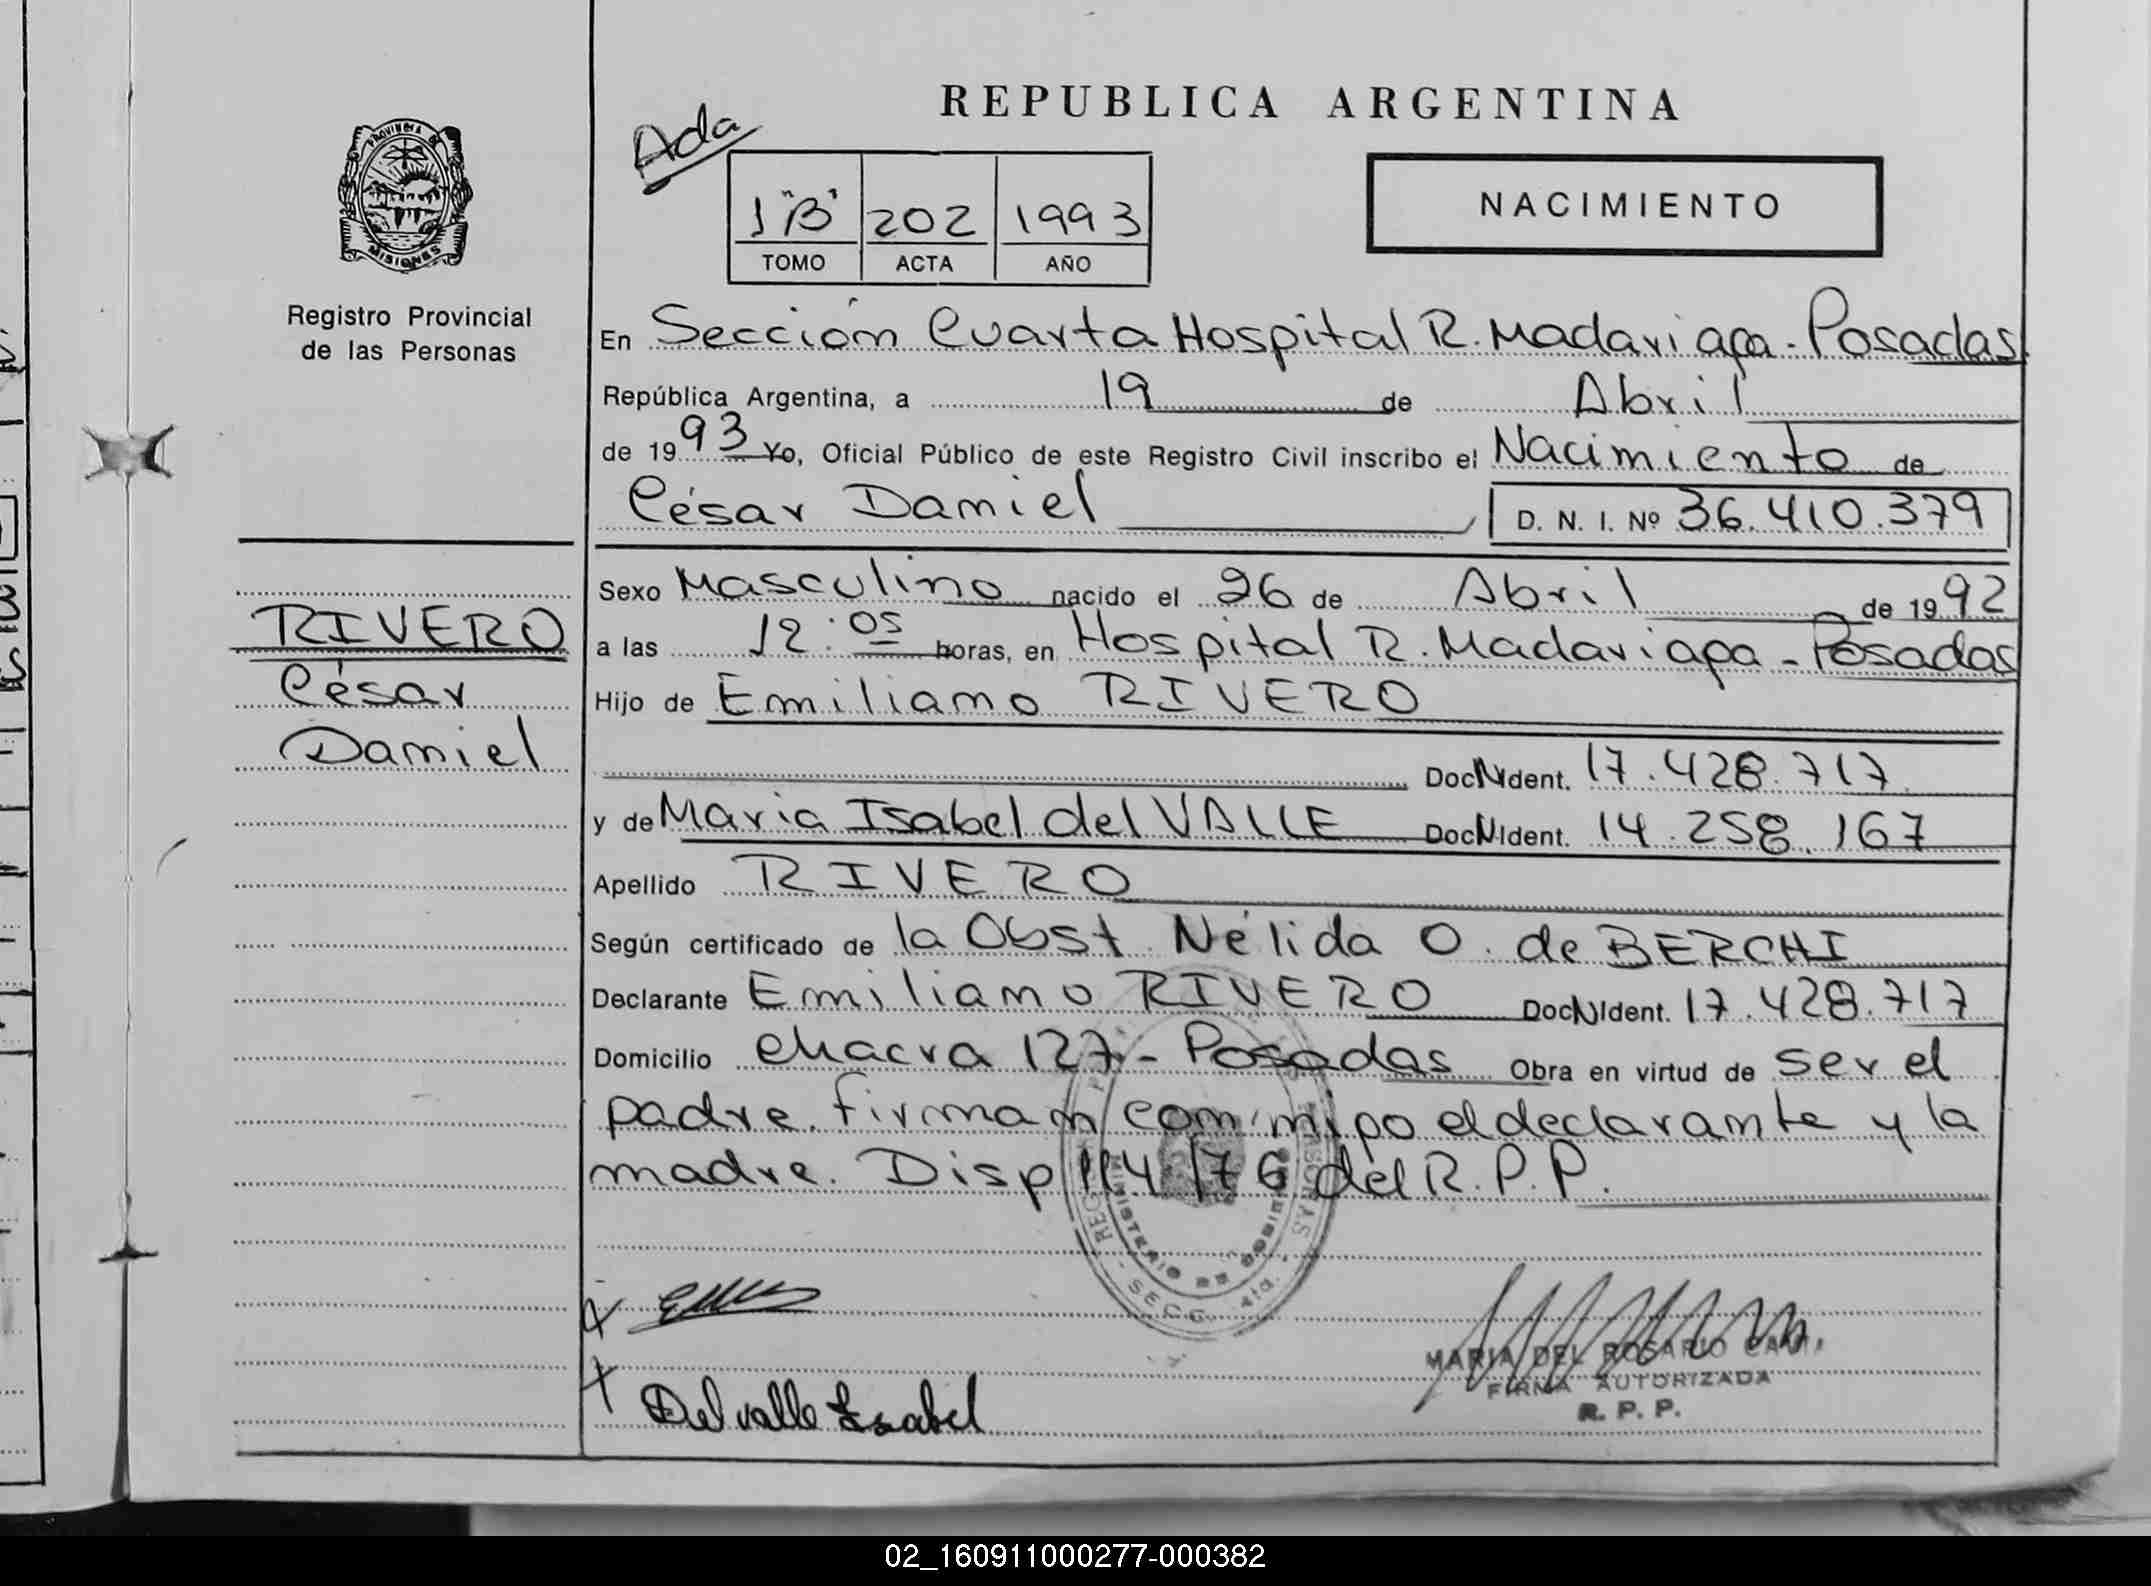 REPUBLICA ARGENTINA
Ada
PROVINCIA DE
MISIONES
1 "B" 202 1993
TOMO ACTA AÑO
NACIMIENTO
Registro Provincial
de las Personas
En Sección Cuarta Hospital R. Madariaga - Posadas
República Argentina, a 19 de Abril
de 1993 Yo, Oficial Público de este Registro Civil inscribo el Nacimiento de
César Daniel D. N. I. Nº 36.410.379
RIVERO
César
Daniel
Sexo Masculino nacido el 26 de Abril de 1992
a las 12:05 horas, en Hospital R. Madariaga - Posadas
Hijo de Emiliano RIVERO
Doc N Ident. 17.428.717
y de Maria Isabel del VALLE Doc N Ident. 14.258.167
Apellido RIVERO
Según certificado de la Obst. Nélida O. de BERCHI
Declarante Emiliano RIVERO Doc N Ident. 17.428.717
Domicilio chacra 127 - Posadas Obra en virtud de ser el
padre. firman conmigo el declarante y la
madre. Disp 114/76 del R.P.P.
MINISTERIO DE GOBIERNO
SECC. 4ta.
Del valle Isabel
MARIA DEL ROSARIO
FIRMA AUTORIZADA
R. P. P.
02_160911000277-000382